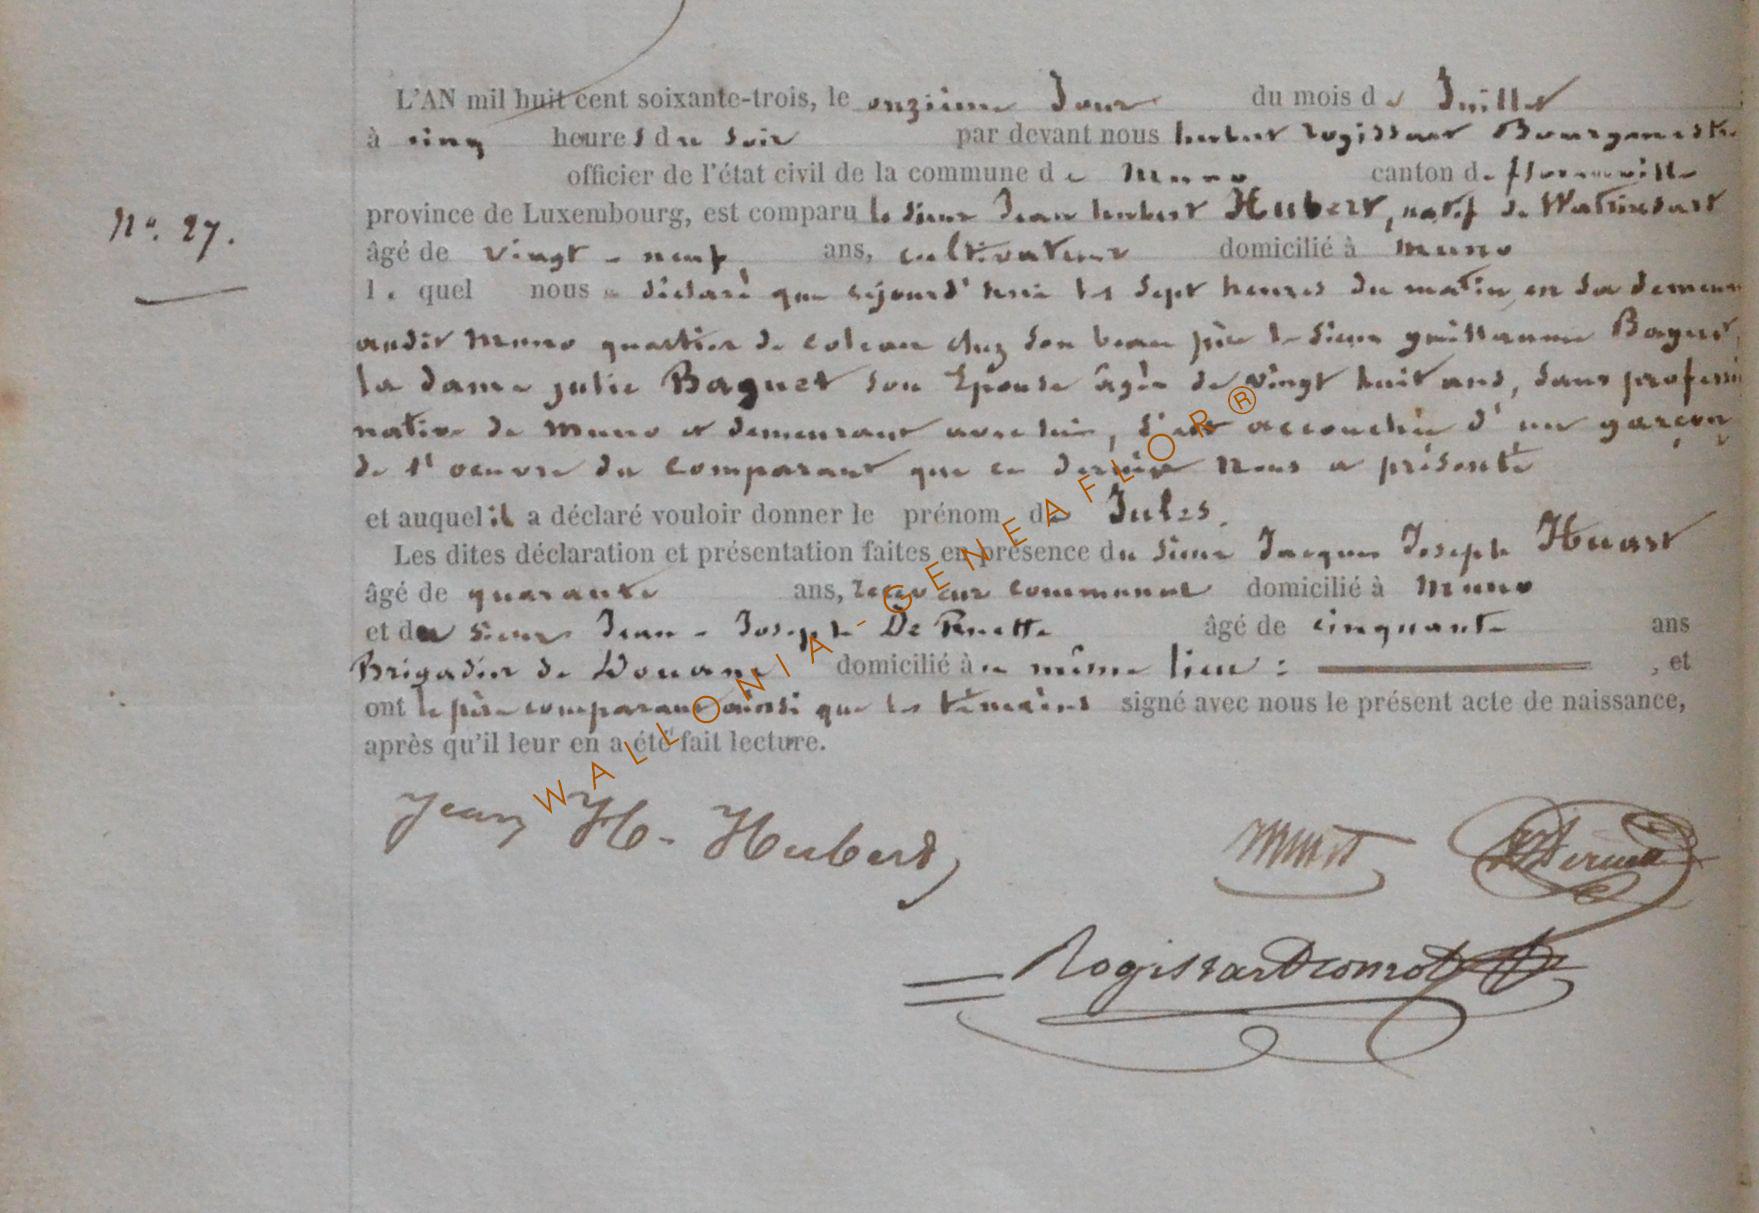 L'AN mil huit cent soixante-trois, le onzième Jour du mois de Juillet
à cinq heures du soir par devant nous hubert rogissart Bourgmestre
officier de l'état civil de la commune de Muno canton de florenville
province de Luxembourg, est comparu le sieur Jean hubert Hubert, natif de Watrinsart
N°. 27.
âgé de vingt-neuf ans, cultivateur domicilié à Muno
lequel nous a déclaré que cejourd'hui les sept heures du matin en sa demeure
audit Muno quartier de chez son beau père le sieur guillaume Baguet,
la dame julie Baguet son Epouse âgée de vingt huit ans, sans profession
native de Muno et demeurant avec lui, s'est accouchée d'un garçon
de l'oeuvre du comparant que ce dernier nous a présenté
et auquel il a déclaré vouloir donner le prénom de Jules.
Les dites déclaration et présentation faites en présence du sieur Jacques Joseph Huart
âgé de quarante ans, receveur communal domicilié à Muno
et du sieur Jean-Joseph De âgé de cinquante ans
Brigadier de Douane domicilié à même lieu : , et
ont le père comparant ainsi que les témoins signé avec nous le présent acte de naissance,
après qu'il leur en a été fait lecture.
WALLONIA-GENEAFLOR®
Jean H. Hubert
Huart
Rogissart